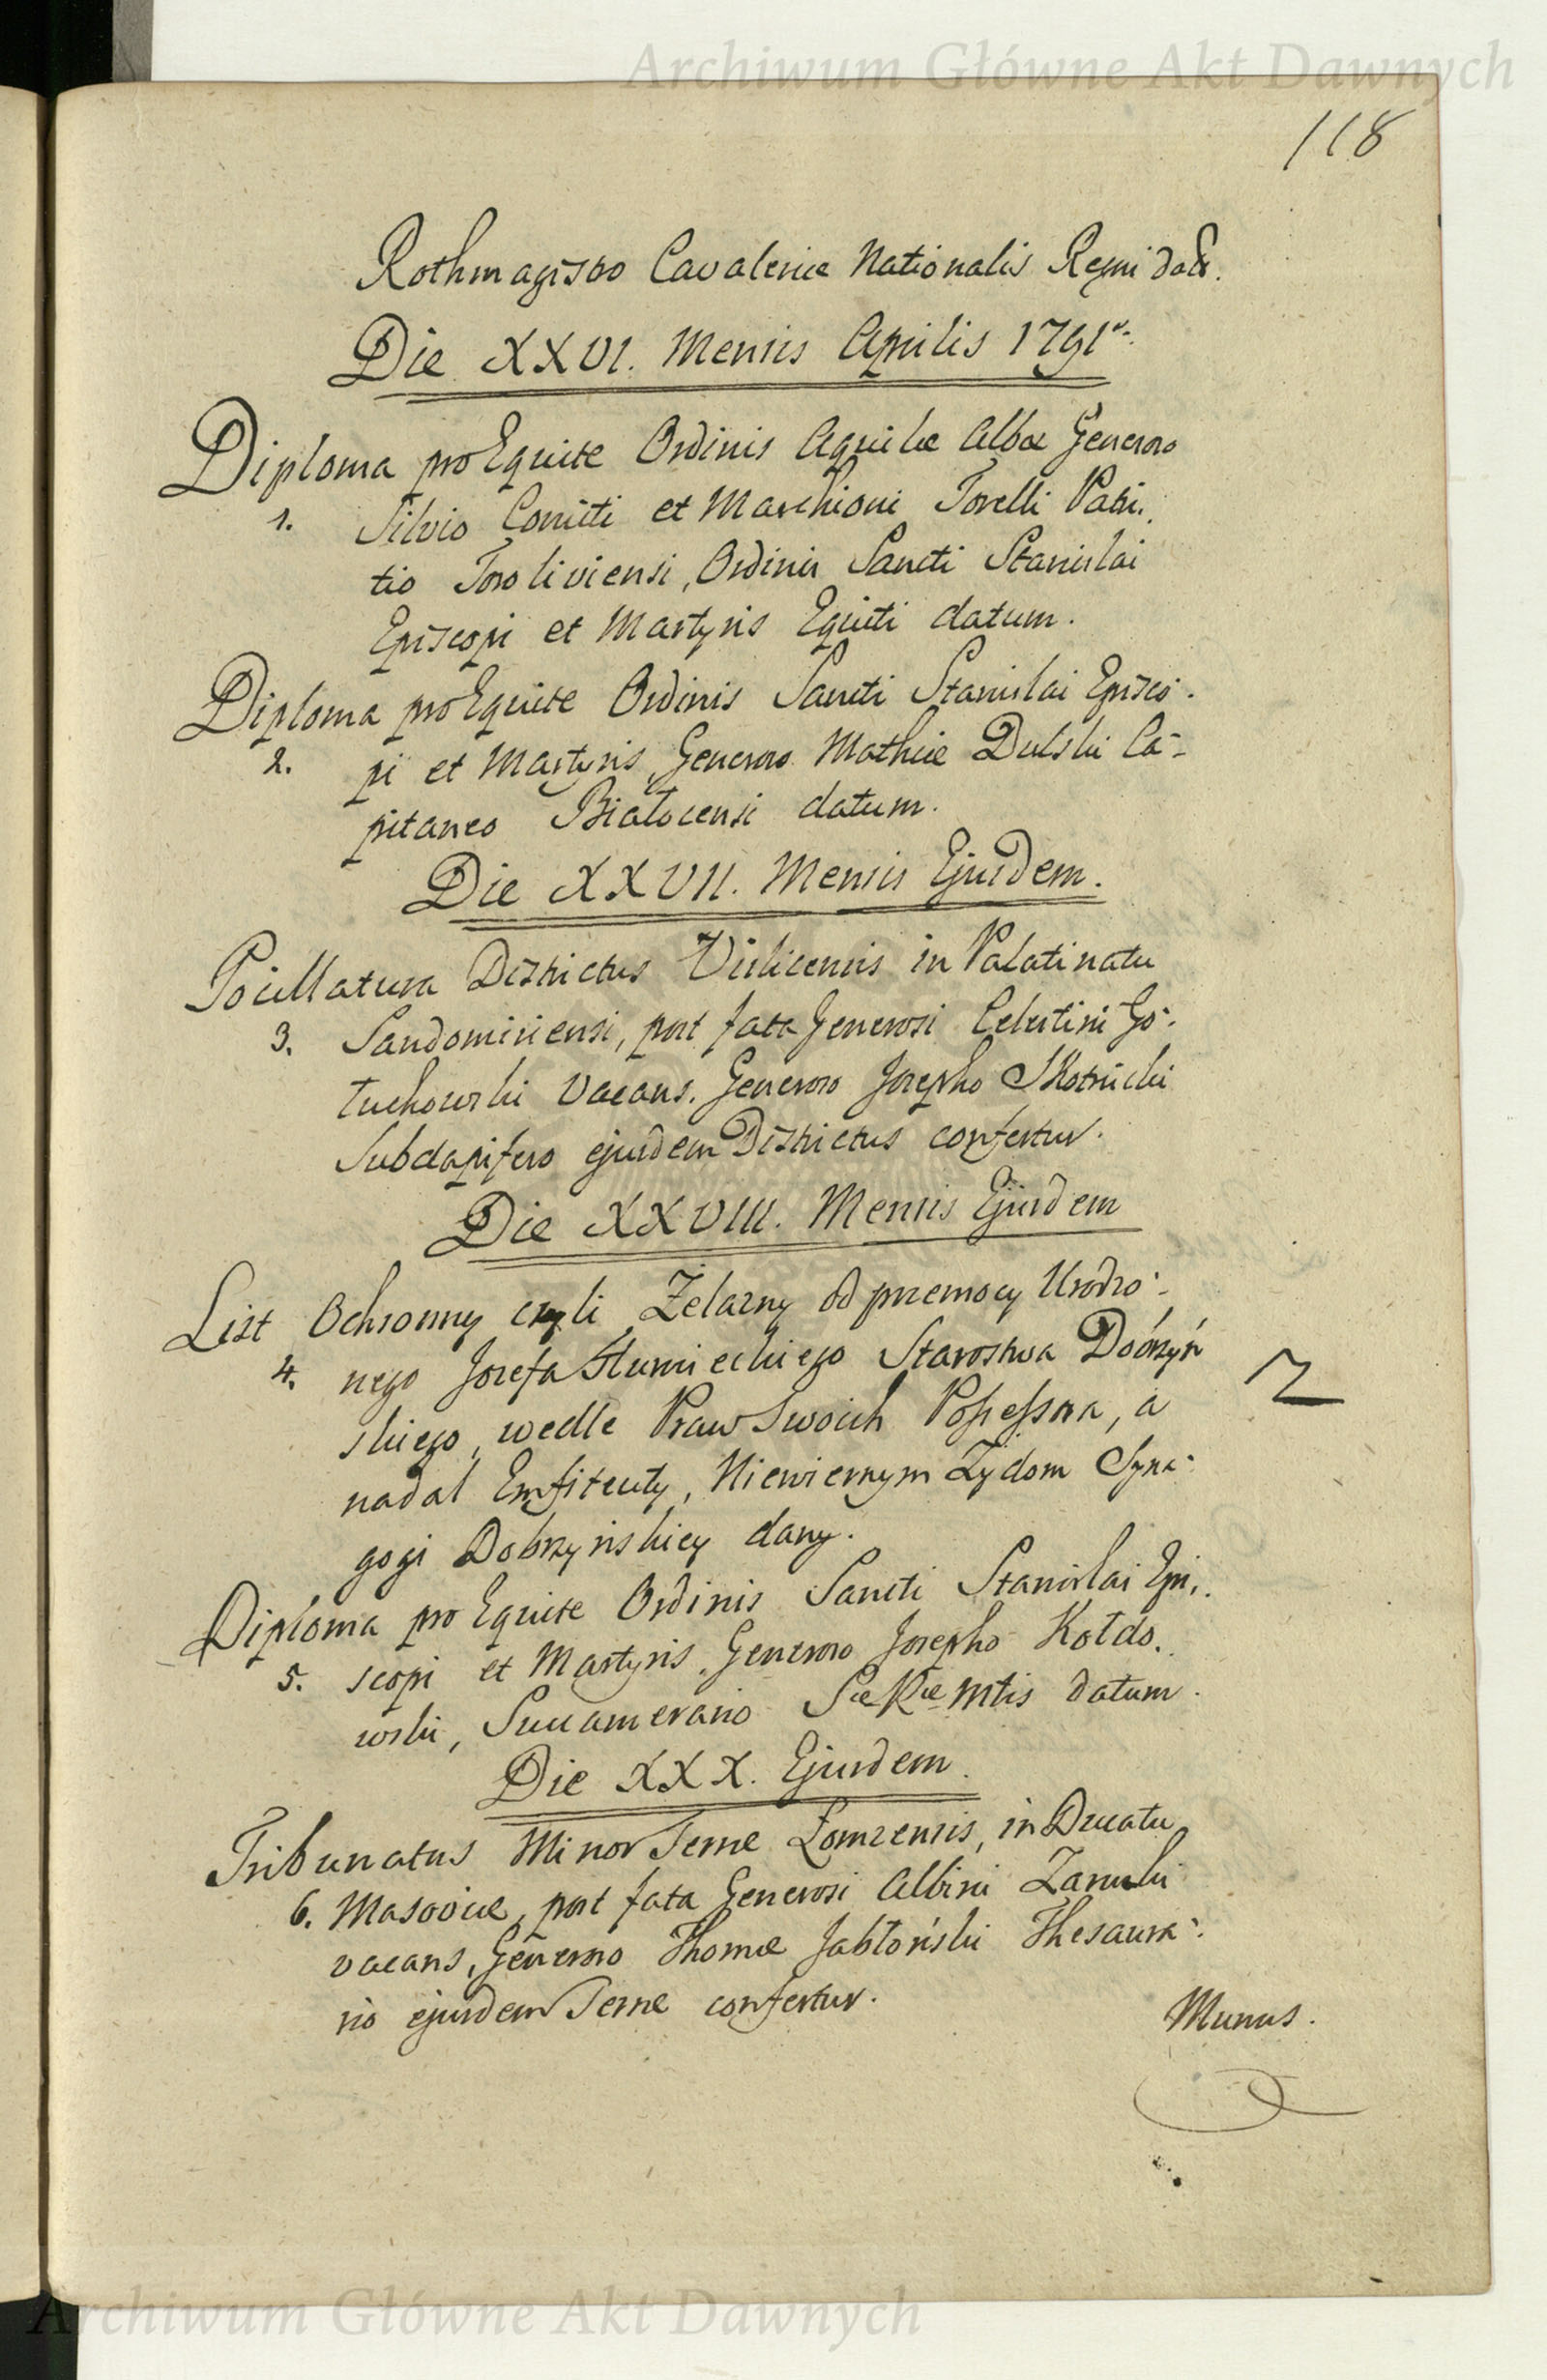 Archiwum Główne Akt Dawnych
118
Rothmagistro Cavaleriæ Nationalis Regni
Die XXVI. Mensis Aprilis 1791
Diploma pro Equite Ordinis Aquilæ Albæ Generoso
1. Silvio Comiti et Marchioni Torelli Patri.
tio Foroliviensi, Ordinis Sancti Stanislai
Episcopi et Martyris Equiti datum.
Diploma pro Equite Ordinis Sancti Stanislai Episco-
2. pi et Martyris, Generoso Mathiæ Dulski Ca-
pitaneo datum.
Die XXVII. Mensis Ejusdem.
Pocillatura Districtus Vislicensis in Palatinatu
3. Sandomiriensi, post fata Generosi Celestini Go-
łuchowski vacans. Generoso Josepho Skotnicki
Subdapifero ejusdem Districtus confertur.
Die XXVIII. Mensis Ejusdem
List Ochronny czyli Żelazny od przemocy Urodzo-
4. nego Jozefa Starostwa Dobrzyń
skiego, wedle Praw Swoich Possessora, a
nadal Emfiteuty, Niewiernym Żydom Syna-
gogi Dobrzyńskiey dany.
Diploma pro Equite Ordinis Sancti Stanislai Epi.
5. scopi et Martyris, Generoso Josepho Kołdo.
wski, Succamerario Sæ Ræ Mtis datum.
Die XXX. Ejusdem.
Tribunatus Minor Terræ Łomzensis, in Ducatu
6. Masoviæ, post fata Generosi Albini Zaruski
vacans, Generoso Thomæ Jabłoński Thesaura-
rio ejusdem Terræ confertur.
Munus.
Archiwum Główne Akt Dawnych